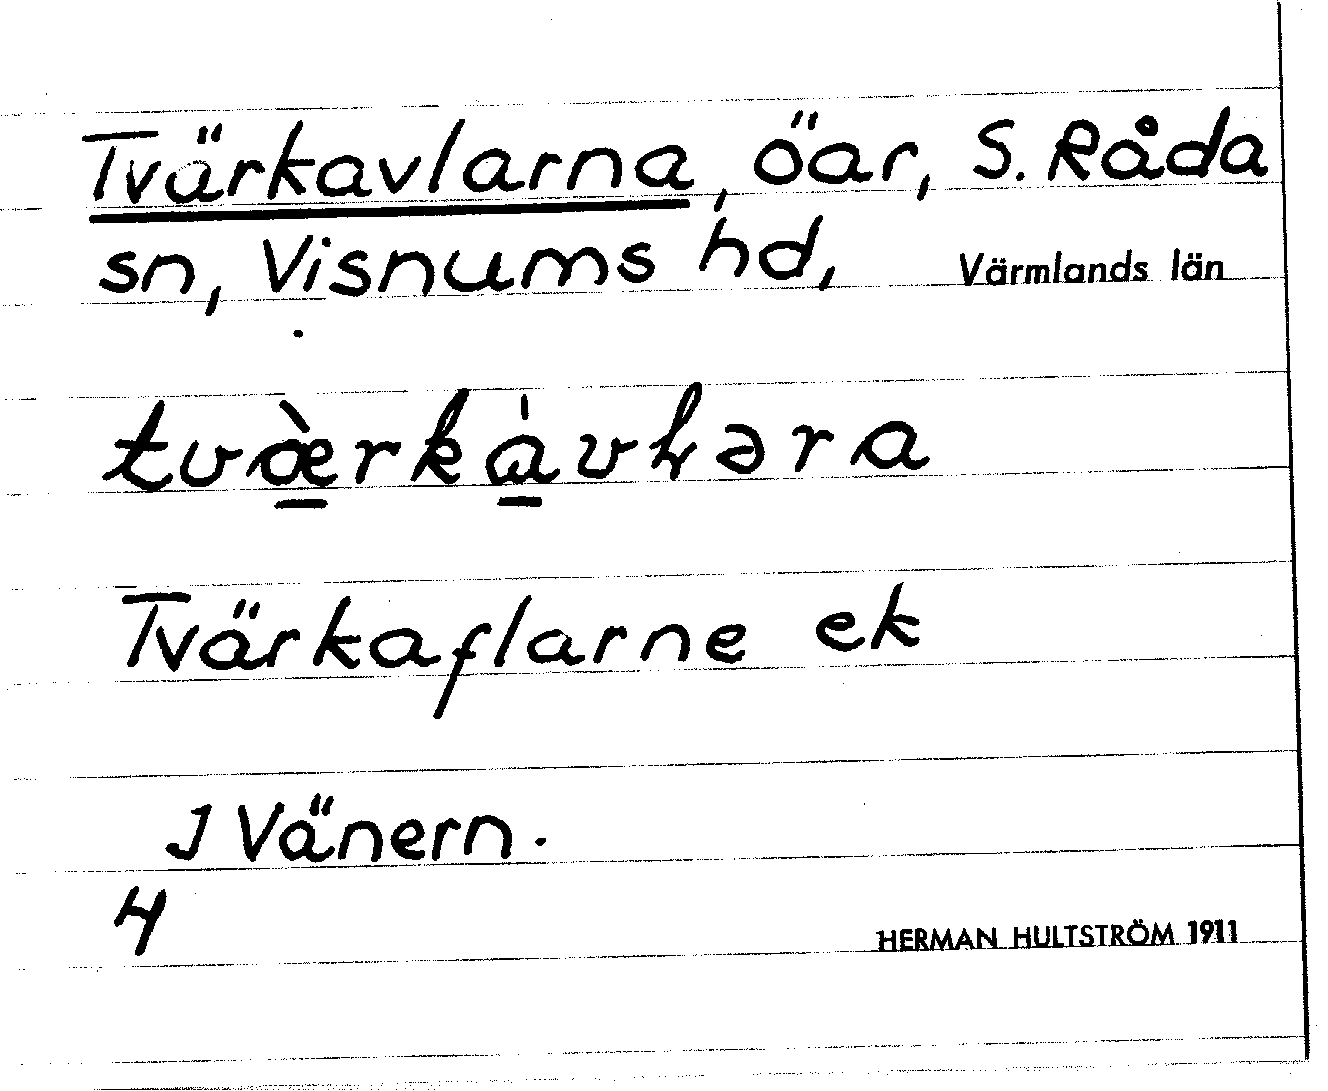 Tvärkavlarna, öar, S. Råda
sn, Visnums hd, Värmlands län
tvæ̠̀rka̠̍vɫəra
Tvärkaflarne ek
I Vänern.
4
HERMAN HULTSTRÖM 1911